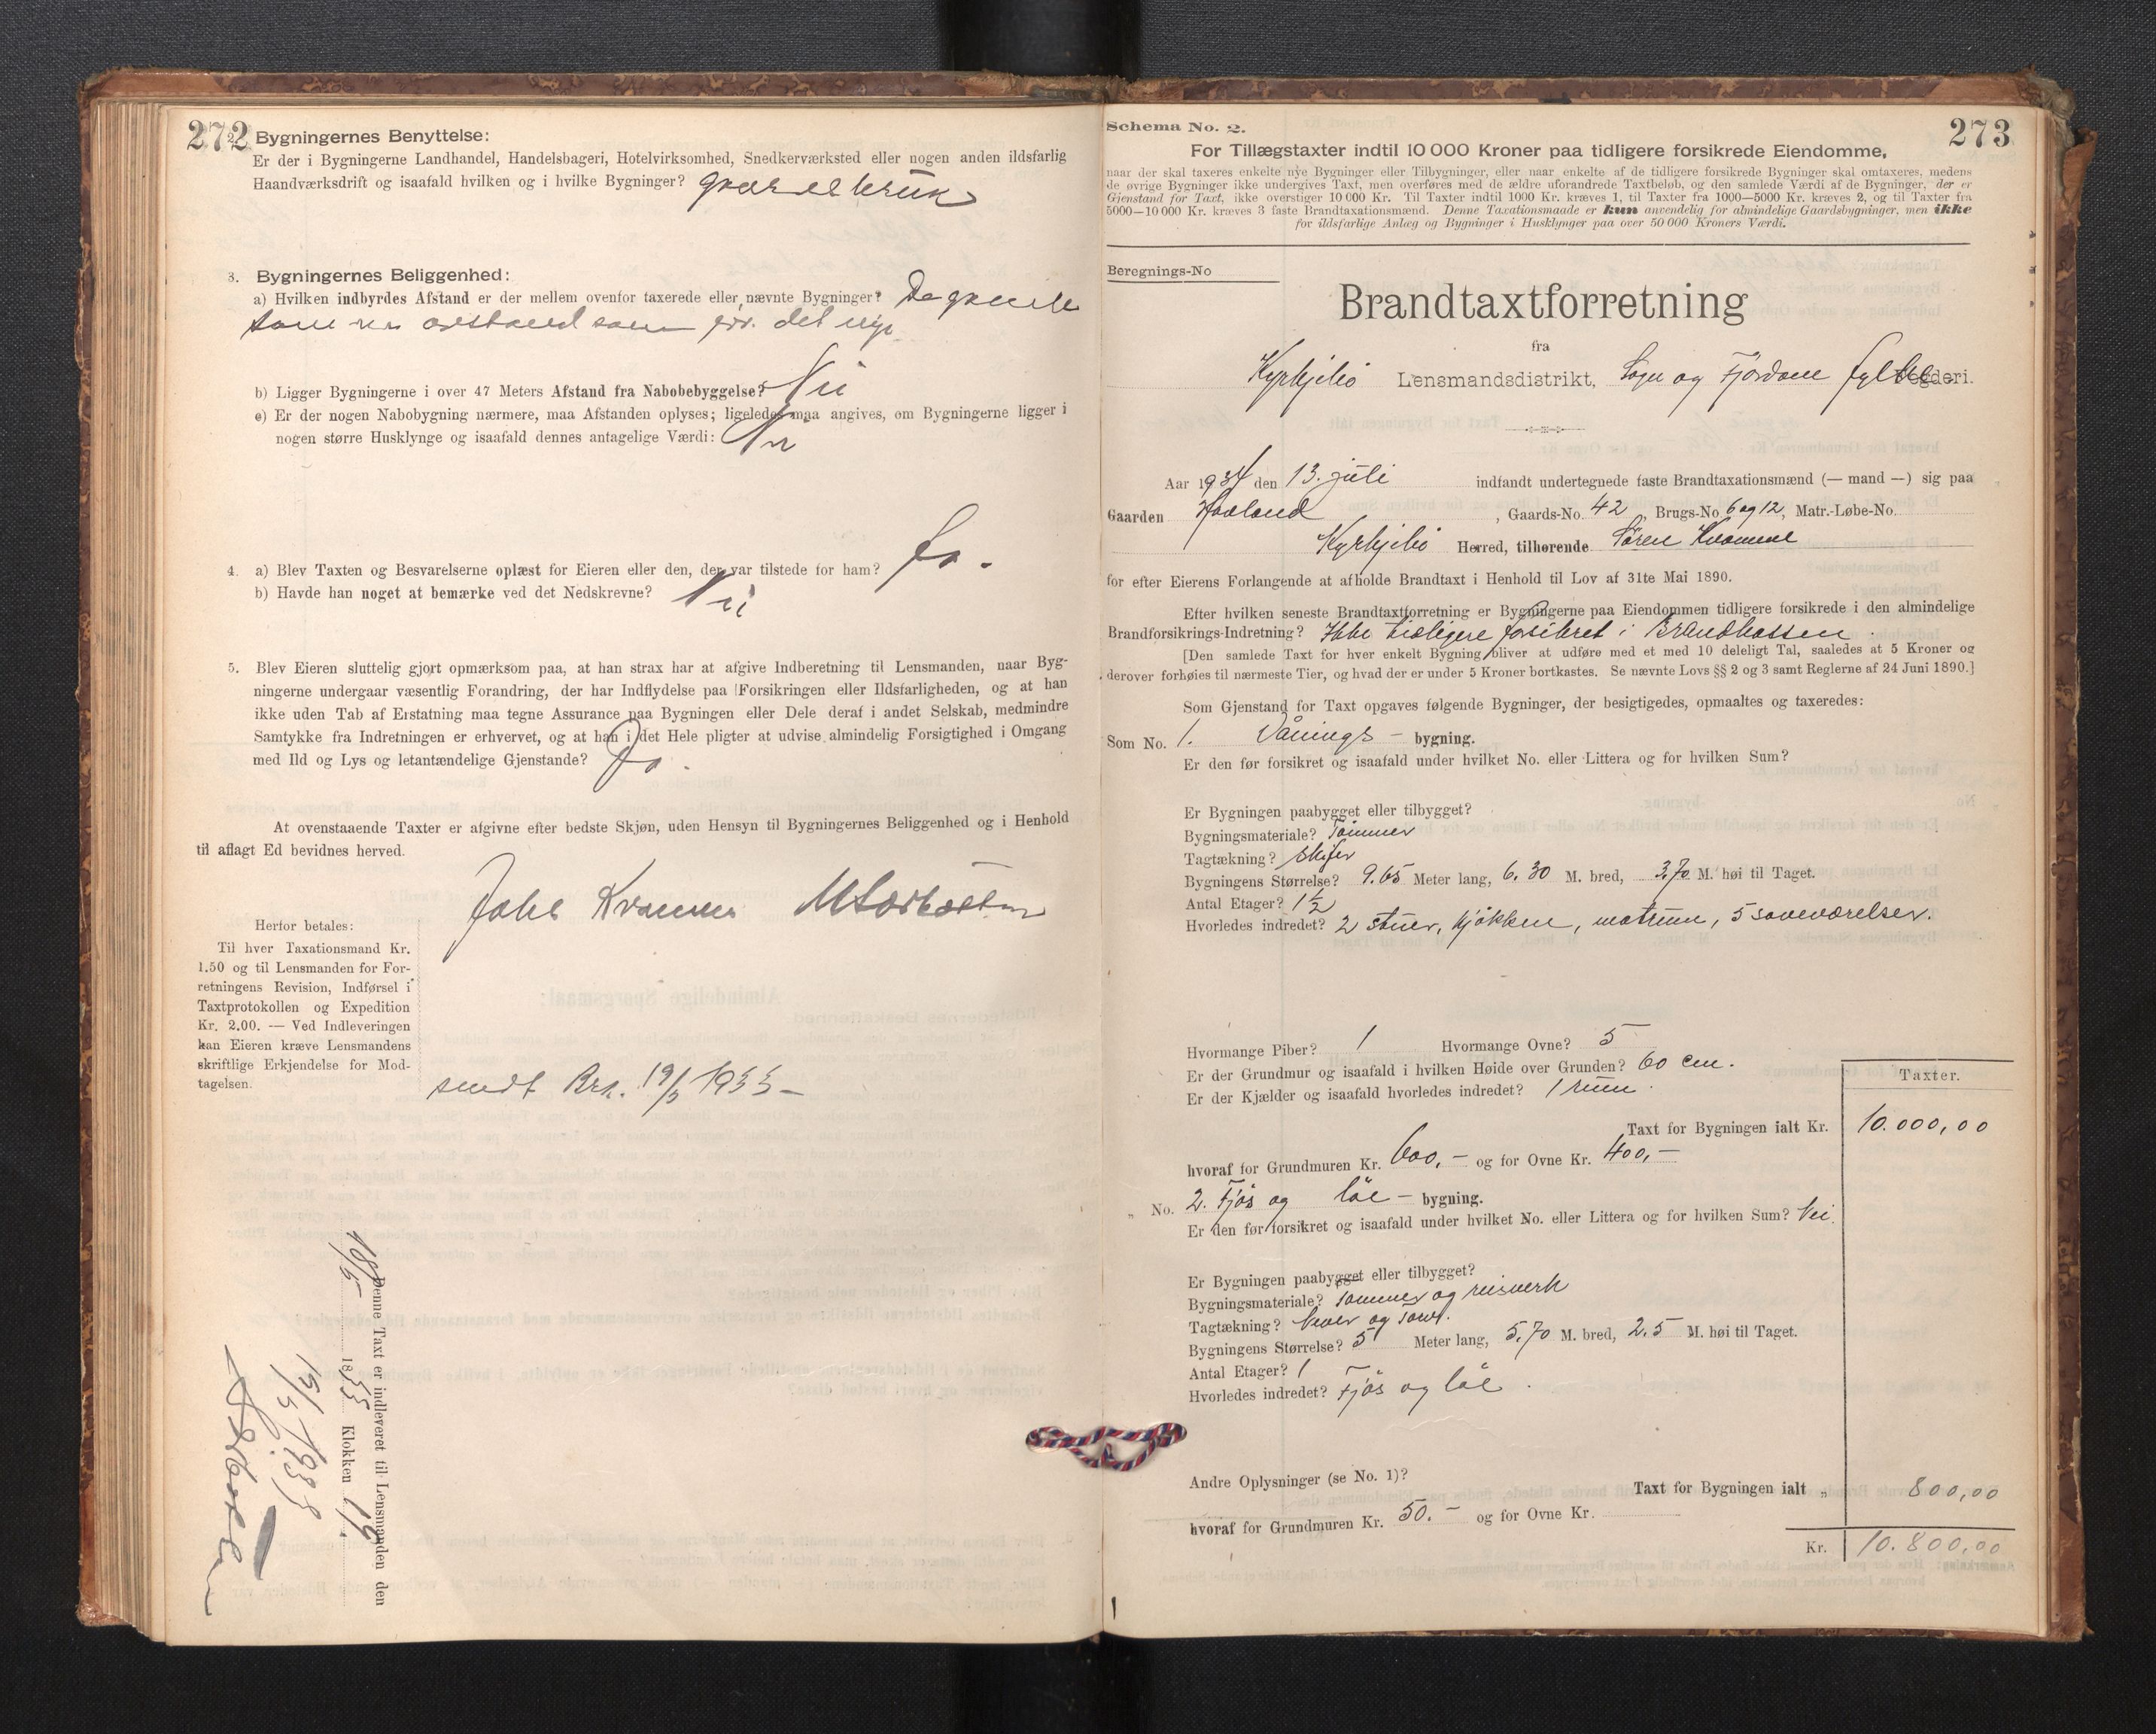 272
Bygningernes Benyttelse:
Er der i Bygningerne Landhandel, Handelsbageri, Hotelvirksomhed, Snedkerværksted eller nogen anden ildsfarlig
Haandværksdrift og isaafald hvilken og i hvilke Bygninger?
3. Bygningernes Beliggenhed:
a) Hvilken indbyrdes Afstand er der mellem ovenfor taxerede eller nævnte Bygninger?
b) Ligger Bygningerne i over 47 Meters Afstand fra Nabobebyggelse? Nei
c) Er der nogen Nabobygning nærmere, maa Afstanden oplyses; ligeledes maa angives, om Bygningerne ligger i
nogen større Husklynge og isaafald dennes antagelige Værdi: Nei
4. a) Blev Taxten og Besvarelserne oplæst for Eieren eller den, der var tilstede for ham? Ja.
b) Havde han noget at bemærke ved det Nedskrevne? Nei
5. Blev Eieren sluttelig gjort opmærksom paa, at han strax har at afgive Indberetning til Lensmanden, naar Byg-
ningerne undergaar væsentlig Forandring, der har Indflydelse paa Forsikringen eller Ildsfarligheden, og at han
ikke uden Tab af Erstatning maa tegne Assurance paa Bygningen eller Dele deraf i andet Selskab, medmindre
Samtykke fra Indretningen er erhvervet, og at han i det Hele pligter at udvise almindelig Forsigtighed i Omgang
med Ild og Lys og letantændelige Gjenstande? Ja.
At ovenstaaende Taxter er afgivne efter bedste Skjøn, uden Hensyn til Bygningernes Beliggenhed og i Henhold
til aflagt Ed bevidnes herved.
Herfor betales:
Til hver Taxationsmand Kr.
1.50 og til Lensmanden for For-
retningens Revision, Indførsel i
Taxtprotokollen og Expedition
Kr. 2.00. — Ved Indleveringen
kan Eieren kræve Lensmandens
skriftlige Erkjendelse for Mod-
tagelsen.
sendt Brk. 19/5 1955 -
Denne Taxt er indleveret til Lensmanden den
18 55 Klokken 19.
Schema No. 2.
273
For Tillægstaxter indtil 10 000 Kroner paa tidligere forsikrede Eiendomme,
naar der skal taxeres enkelte nye Bygninger eller Tilbygninger, eller naar enkelte af de tidligere forsikrede Bygninger skal omtaxeres, medens
de øvrige Bygninger ikke undergives Taxt, men overføres med de ældre uforandrede Taxtbeløb, og den samlede Værdi af de Bygninger, der er
Gjenstand for Taxt, ikke overstiger 10 000 Kr. Til Taxter indtil 1000 Kr. kræves 1, til Taxter fra 1000—5000 Kr. kræves 2, og til Taxter fra
5000—10 000 Kr. kræves 3 faste Brandtaxationsmænd. Denne Taxationsmaade er kun anvendelig for almindelige Gaardsbygninger, men ikke
for ildsfarlige Anlæg og Bygninger i Husklynger paa over 50 000 Kroners Værdi.
Beregnings-No
Brandtaxtforretning
fra
Kyrkjebö Lensmandsdistrikt, Sogn og Fjordane fylke Fogderi.
Aar 1934 den 13. juli indfandt undertegnede faste Brandtaxationsmænd (— mand —) sig paa
Gaarden Haaland, Gaards-No. 42 Brugs-No. 6 og 12, Matr.-Løbe-No.
Kyrkjebö Herred, tilhørende Sören Kvamme
for efter Eierens Forlangende at afholde Brandtaxt i Henhold til Lov af 31te Mai 1890.
Efter hvilken seneste Brandtaxtforretning er Bygningerne paa Eiendommen tidligere forsikrede i den almindelige
Brandforsikrings-Indretning? Ikke tidligere forsikret i Brandkassen.
[Den samlede Taxt for hver enkelt Bygning bliver at udføre med et med 10 deleligt Tal, saaledes at 5 Kroner og
derover forhøies til nærmeste Tier, og hvad der er under 5 Kroner bortkastes. Se nævnte Lovs §§ 2 og 3 samt Reglerne af 24 Juni 1890.]
Som Gjenstand for Taxt opgaves følgende Bygninger, der besigtigedes, opmaaltes og taxeredes:
Som No. 1. Vånings - bygning.
Er den før forsikret og isaafald under hvilket No. eller Littera og for hvilken Sum?
Er Bygningen paabygget eller tilbygget?
Bygningsmateriale? Tömmer
Tagtækning? Skifer
Bygningens Størrelse? 9.65 Meter lang, 6.30 M. bred, 3.70 M. høi til Taget.
Antal Etager? 1 1/2
Hvorledes indredet? 2 stuer, kjökken, matrum, 5 soveværelser.
Hvormange Piber? 1 Hvormange Ovne? 5
Er der Grundmur og isaafald i hvilken Høide over Grunden? 60 cm.
Er der Kjælder og isaafald hvorledes indredet? 1 rum.
Taxter.
Taxt for Bygningen ialt Kr. 10.000,00
hvoraf for Grundmuren Kr. 600,- og for Ovne Kr. 400,-
„ No. 2. Fjös og löe - bygning.
Er den før forsikret og isaafald under hvilket No. eller Littera og for hvilken Sum? Nei
Er Bygningen paabygget eller tilbygget?
Bygningsmateriale? Tömmer og reisverk
Tagtækning? Never og torv.
Bygningens Størrelse? 5 Meter lang, 5,70 M. bred, 2.5 M. høi til Taget.
Antal Etager? 1
Hvorledes indredet? Fjös og löe.
Andre Oplysninger (se No. 1)?
Taxt for Bygningen ialt „ 800,00
hvoraf for Grundmuren Kr. 50.- og for Ovne Kr.
Kr. 10.800,00